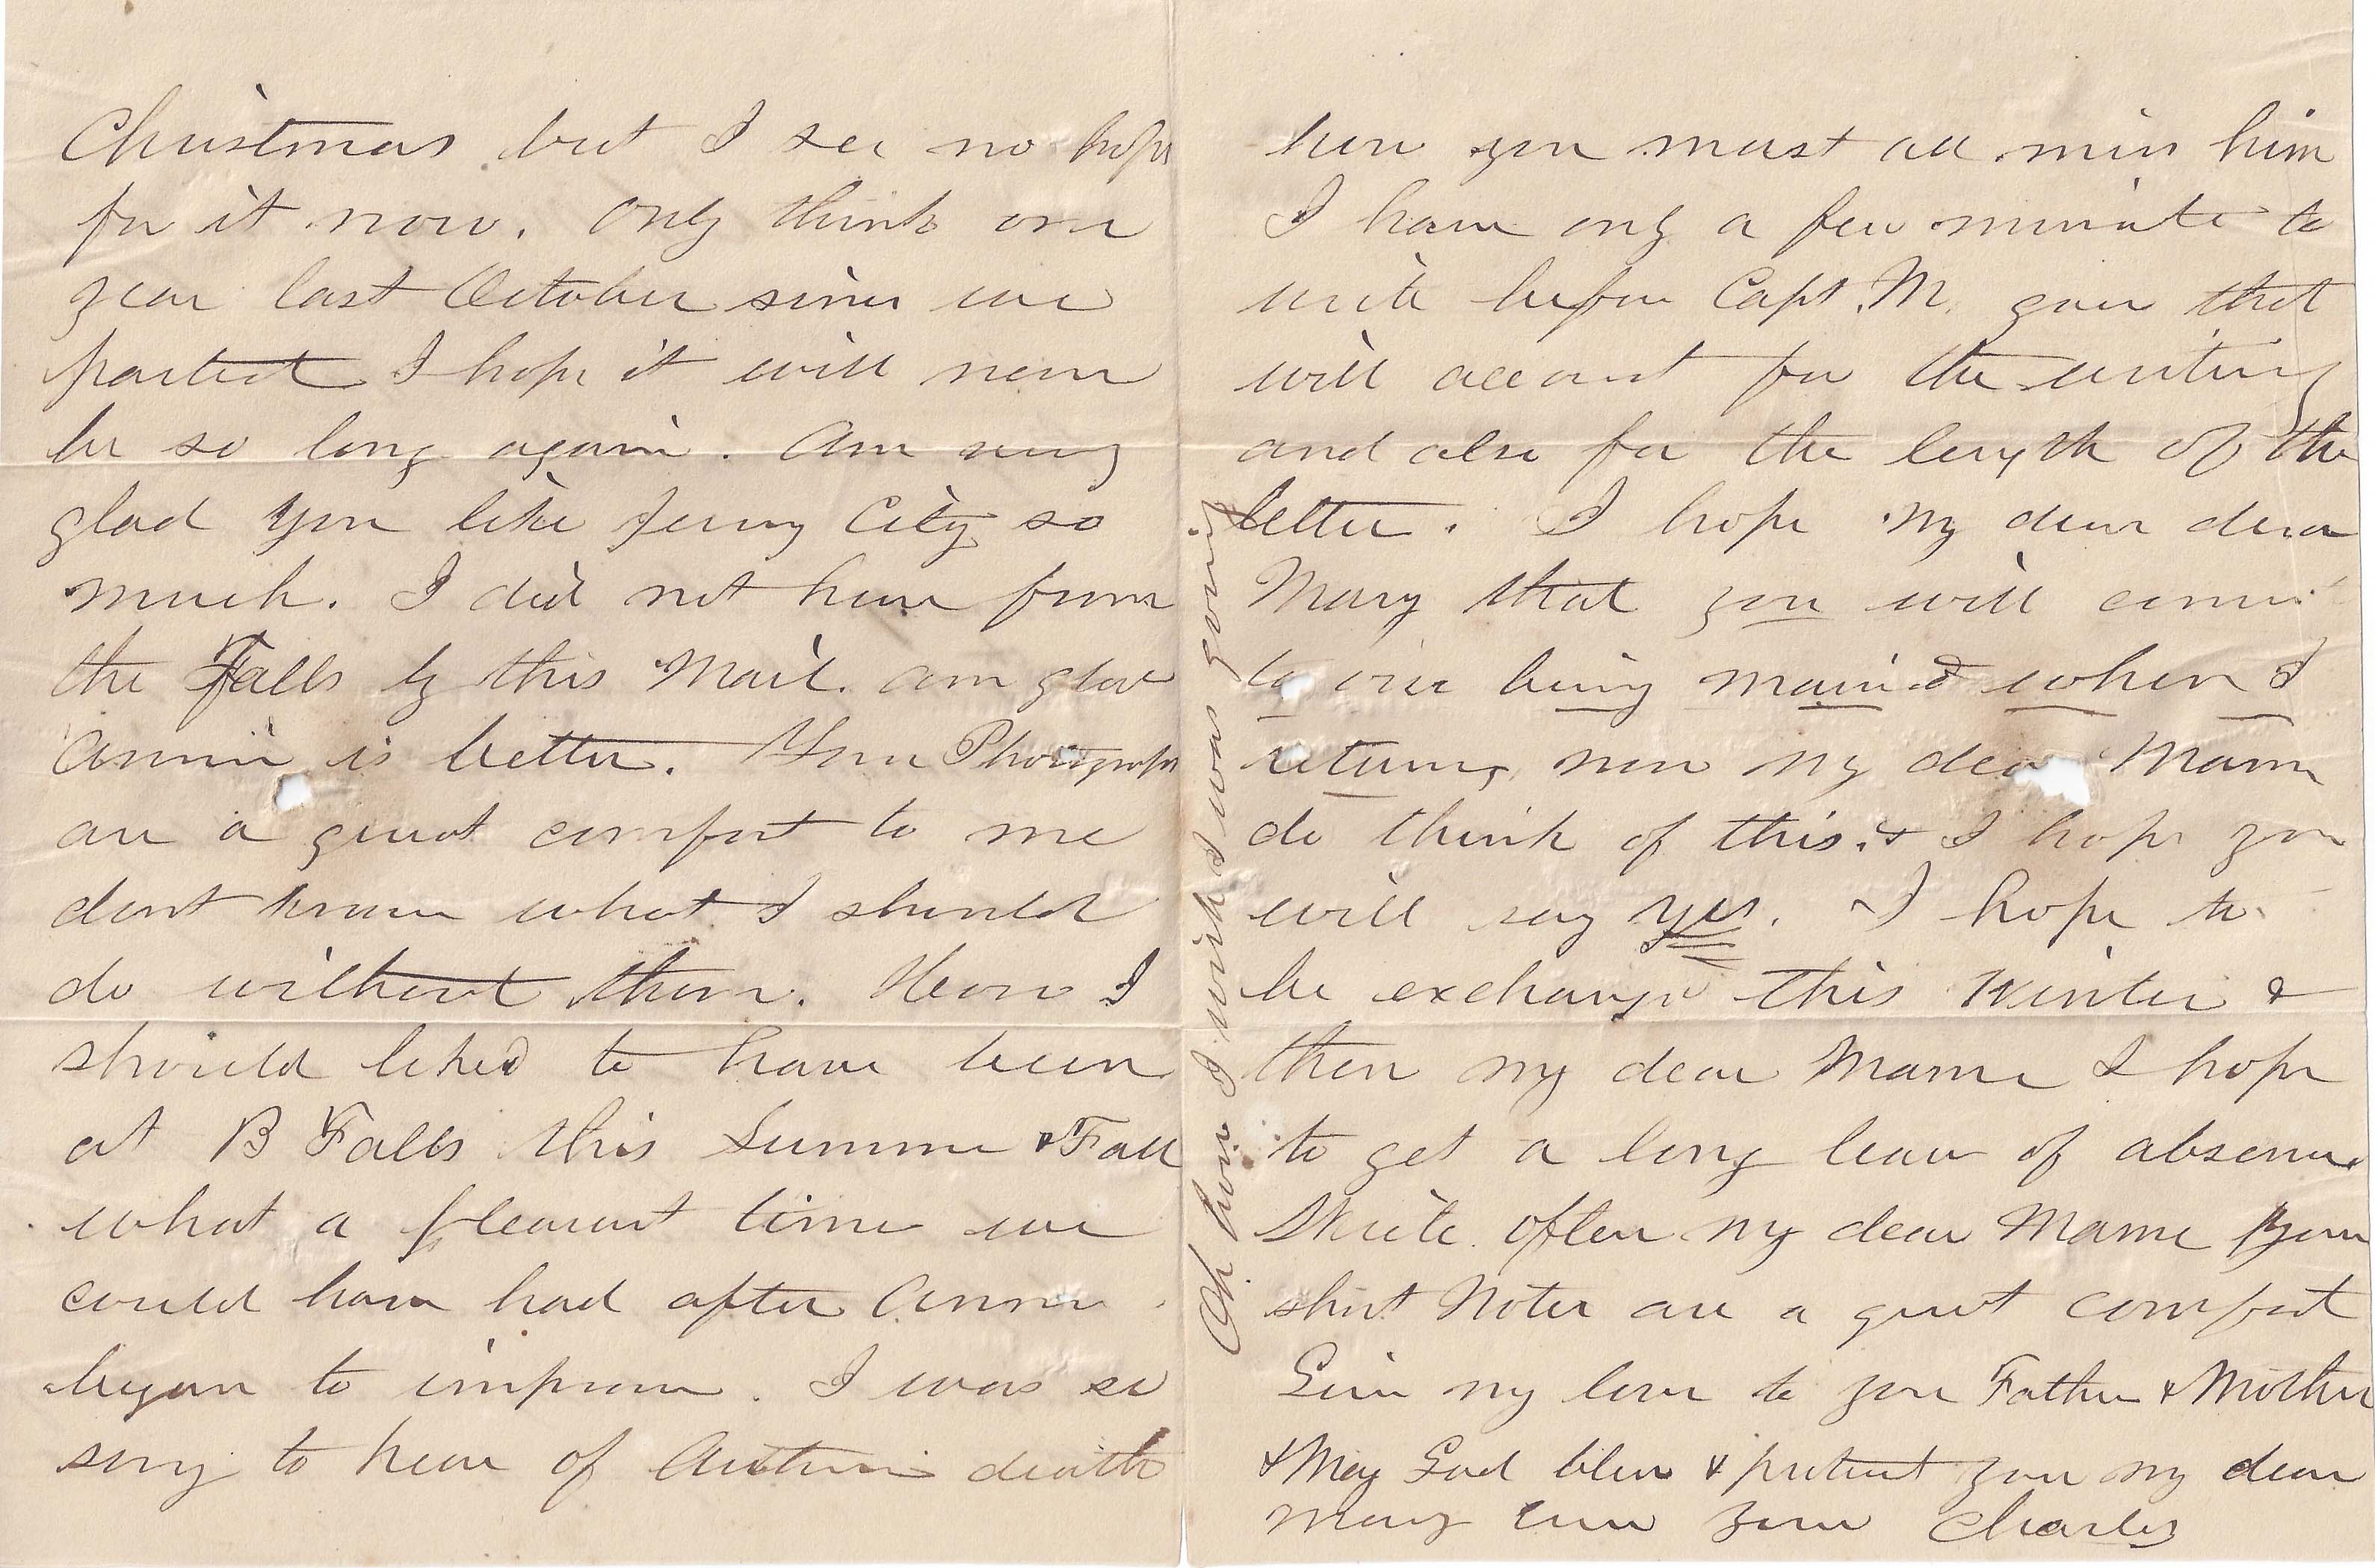 Christmas but I see no hope
for it now. Only think one
year last October since we
parted I hope it will never
be so long again. Am very
glad you like Jersey City so
much. I did not hear from
the Falls by this Mail. am glad
Annie is better. Your Photographs
are a great comfort to me
dont know what I should
do without them. How I
should liked to have been
at B Falls this Summer & Fall
what a pleasant time we
could have had after Annie
began to improve. I was so
sorry to hear of death
how you must all miss him
I have only a few minute to
write before Capt. M. goes that
will account for the writing
and also for the length of the
letter. I hope my dear dear
Mary that you will consent
to our being married when I
return, now my dear Mame
do think of this. & I hope you
will say yes. I hope to
be exchange this Winter &
then my dear Mame I hope
to get a long leave of absence
Write often my dear Mame your
short Notes are a great comfort
Give my love to your Father & Mother
& May God bless & protect you my dear
Mary Ever your Charley
Oh how I wish I was going